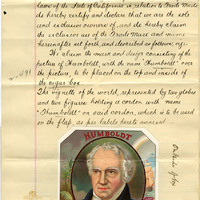 laws of the State of California in relation to Trade Marks
do hereby certify and declare that we are the sole
and exclusive owners of, and do hereby claim
the exclusive use of the Trade Mark and name
hereinafter set forth, and described as follows, viz:
We claim the mark and design consisting of the
picture of Humboldt, with the name "Humboldt" over
the picture, to be placed on the top and inside of
the cigar box
The vignette of the world, represented by two globes
and two figures holding a cordon with name
"Humboldt" on said cordon, which is to be used
on the flap, as per labels hereto annexed
1091
HUMBOLDT